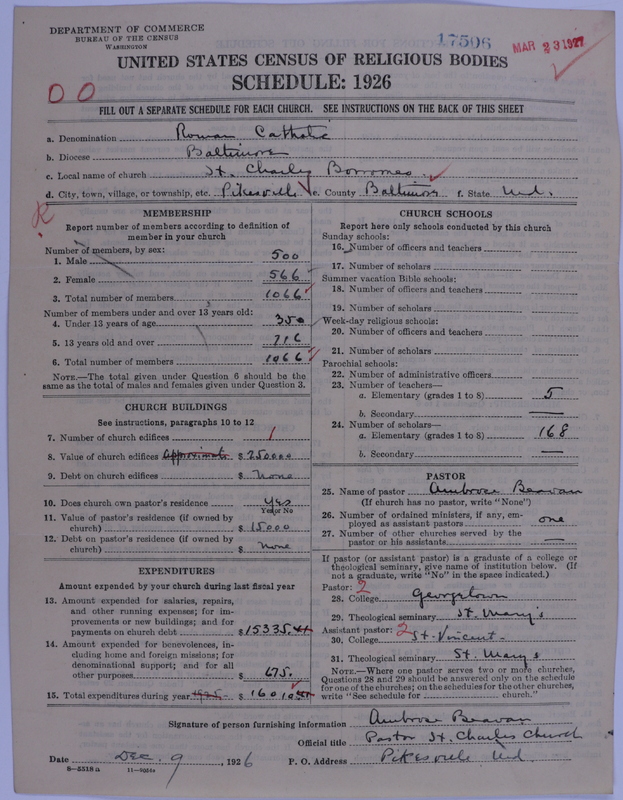 DEPARTMENT OF COMMERCE
BUREAU OF THE CENSUS
WASHINGTON
17506
MAR 23 1927
UNITED STATES CENSUS OF RELIGIOUS BODIES
SCHEDULE: 1926
00
FILL OUT A SEPARATE SCHEDULE FOR EACH CHURCH. SEE INSTRUCTIONS ON THE BACK OF THIS SHEET
a. Denomination Roman Catholic
b. Diocese Baltimore
c. Local name of church St. Charles Borromeo
d. City, town, village, or township, etc. Pikesville e. County Baltimore f. State Md.
R
MEMBERSHIP
Report number of members according to definition of
member in your church
Number of members, by sex:
1. Male 500
2. Female 566
3. Total number of members 1066
Number of members under and over 13 years old:
4. Under 13 years of age 350
5. 13 years old and over 716
6. Total number of members 1066
NOTE.—The total given under Question 6 should be the
same as the total of males and females given under Question 3.
CHURCH BUILDINGS
See instructions, paragraphs 10 to 12
7. Number of church edifices 1
8. Value of church edifices Approximate $ 250000
9. Debt on church edifices $ None
10. Does church own pastor's residence Yes
Yes or No
11. Value of pastor's residence (if owned by
church) $ 15000
12. Debt on pastor's residence (if owned by
church) $ None
EXPENDITURES
Amount expended by your church during last fiscal year
13. Amount expended for salaries, repairs,
and other running expenses; for im-
provements or new buildings; and for
payments on church debt $ 15335.
14. Amount expended for benevolences, in-
cluding home and foreign missions; for
denominational support; and for all
other purposes $ 675.
15. Total expenditures during year 1925 $ 16010
CHURCH SCHOOLS
Report here only schools conducted by this church
Sunday schools:
16. Number of officers and teachers
17. Number of scholars
Summer vacation Bible schools:
18. Number of officers and teachers
19. Number of scholars
Week-day religious schools:
20. Number of officers and teachers
21. Number of scholars
Parochial schools:
22. Number of administrative officers
23. Number of teachers—
a. Elementary (grades 1 to 8) 5
b. Secondary —
24. Number of scholars—
a. Elementary (grades 1 to 8) 168
b. Secondary —
PASTOR
25. Name of pastor Ambrose Beavan
(If church has no pastor, write "None")
26. Number of ordained ministers, if any, em-
ployed as assistant pastors one
27. Number of other churches served by the
pastor or his assistants —
If pastor (or assistant pastor) is a graduate of a college or
theological seminary, give name of institution below. (If
not a graduate, write "No" in the space indicated.)
Pastor: 2
28. College Georgetown
29. Theological seminary St. Mary's
Assistant pastor: 2
30. College St. Vincent
31. Theological seminary St. Mary's
NOTE.—Where one pastor serves two or more churches,
Questions 28 and 29 should be answered only on the schedule
for one of the churches; on the schedules for the other churches,
write "See schedule for church."
Signature of person furnishing information Ambrose Beavan
Official title Pastor St. Charles Church
Date Dec. 9, 1926 P. O. Address Pikesville Md.
8—5318 a